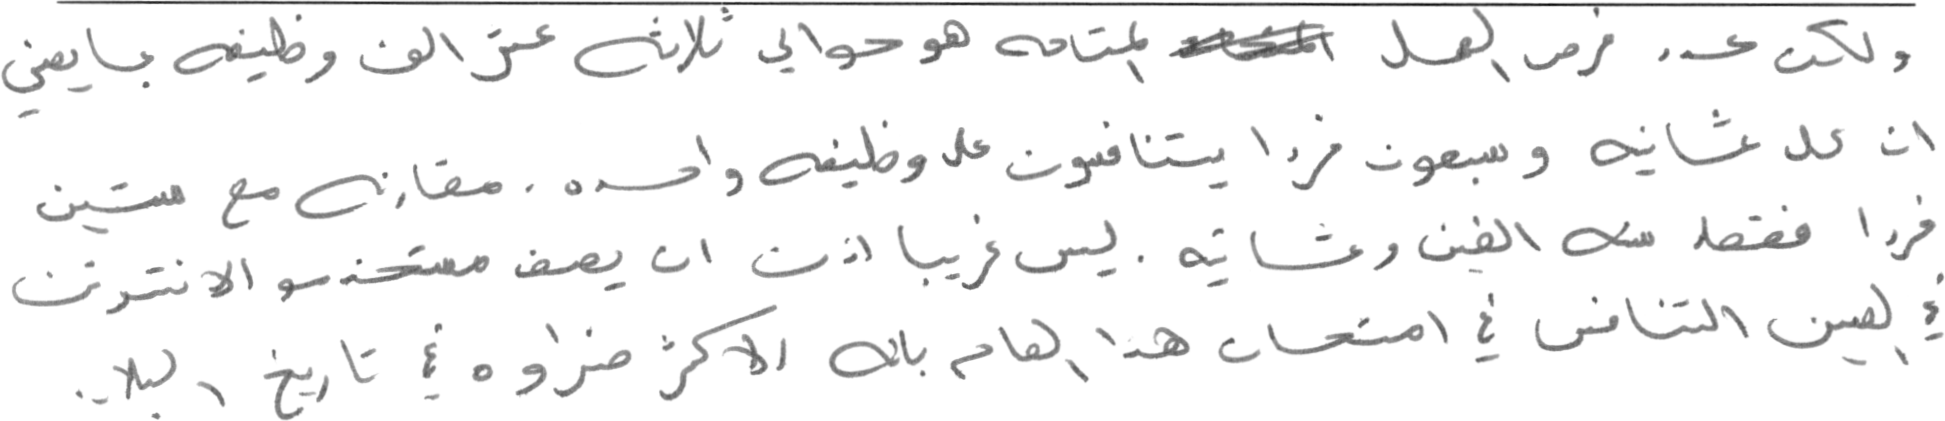 ولكن عدد فرص العمل المتاحه هو حوالي ثلاثه عشر الف وظيفه بما يعني
ان كل ثمانيه وسبعون فردا يتنافسون على وظيفه واحده . مقارنه مع ستين
فردا فقط سنه الفين وثمانيه . ليس غريبا اذن ان يصف مستخدمو الانترنت
في الصين التنافس في امتحان هذا العام بانه الاكثر ضراوه في تاريخ البلاد .